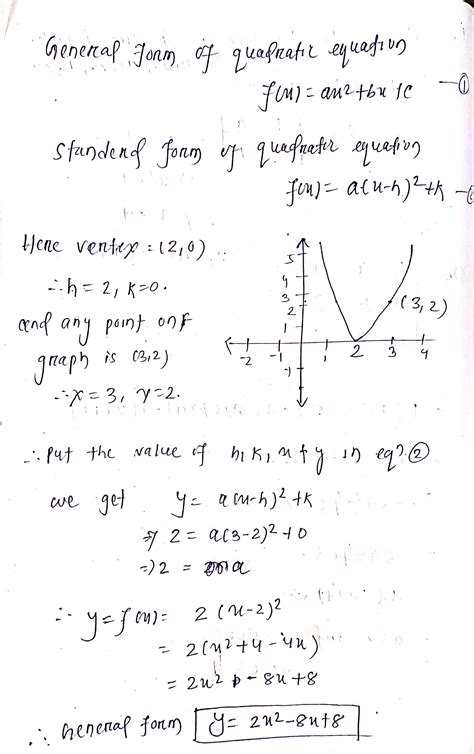 General form of quadratic equation
f(x) = ax2 + bx + c —①
Standerd form of quadratic equation
f(x) = a(x-h)2 + k —
Here vertex : (2,0)
∴ h = 2, k = 0.
and any point on
graph is (3,2)
∴ x = 3, y = 2.
5
4
3
2
1
-1
-2 -1 1 2 3 4
(3,2)
∴ Put the value of h, k, x & y in eqn ②
we get y = a(x-h)2 + k
⇒ 2 = a(3-2)2 + 0
⇒ 2 = a
∴ y = f(x) = 2(x-2)2
= 2(x2 + 4 - 4x)
= 2x2 - 8x + 8
∴ General form y = 2x2 - 8x + 8